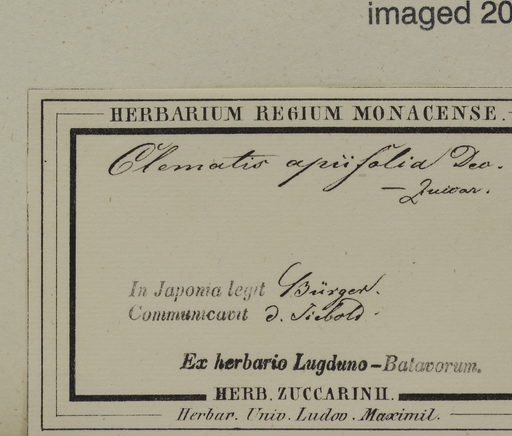 imaged 20
HERBARIUM REGIUM MONACENSE.
Clematis apiifolia Dec.
In Japonia legit Bürger.
Communicavit d. Siebold.
Ex herbario Lugduno-Batavorum.
HERB. ZUCCARINII.
Herbar. Univ. Ludov. Maximil.